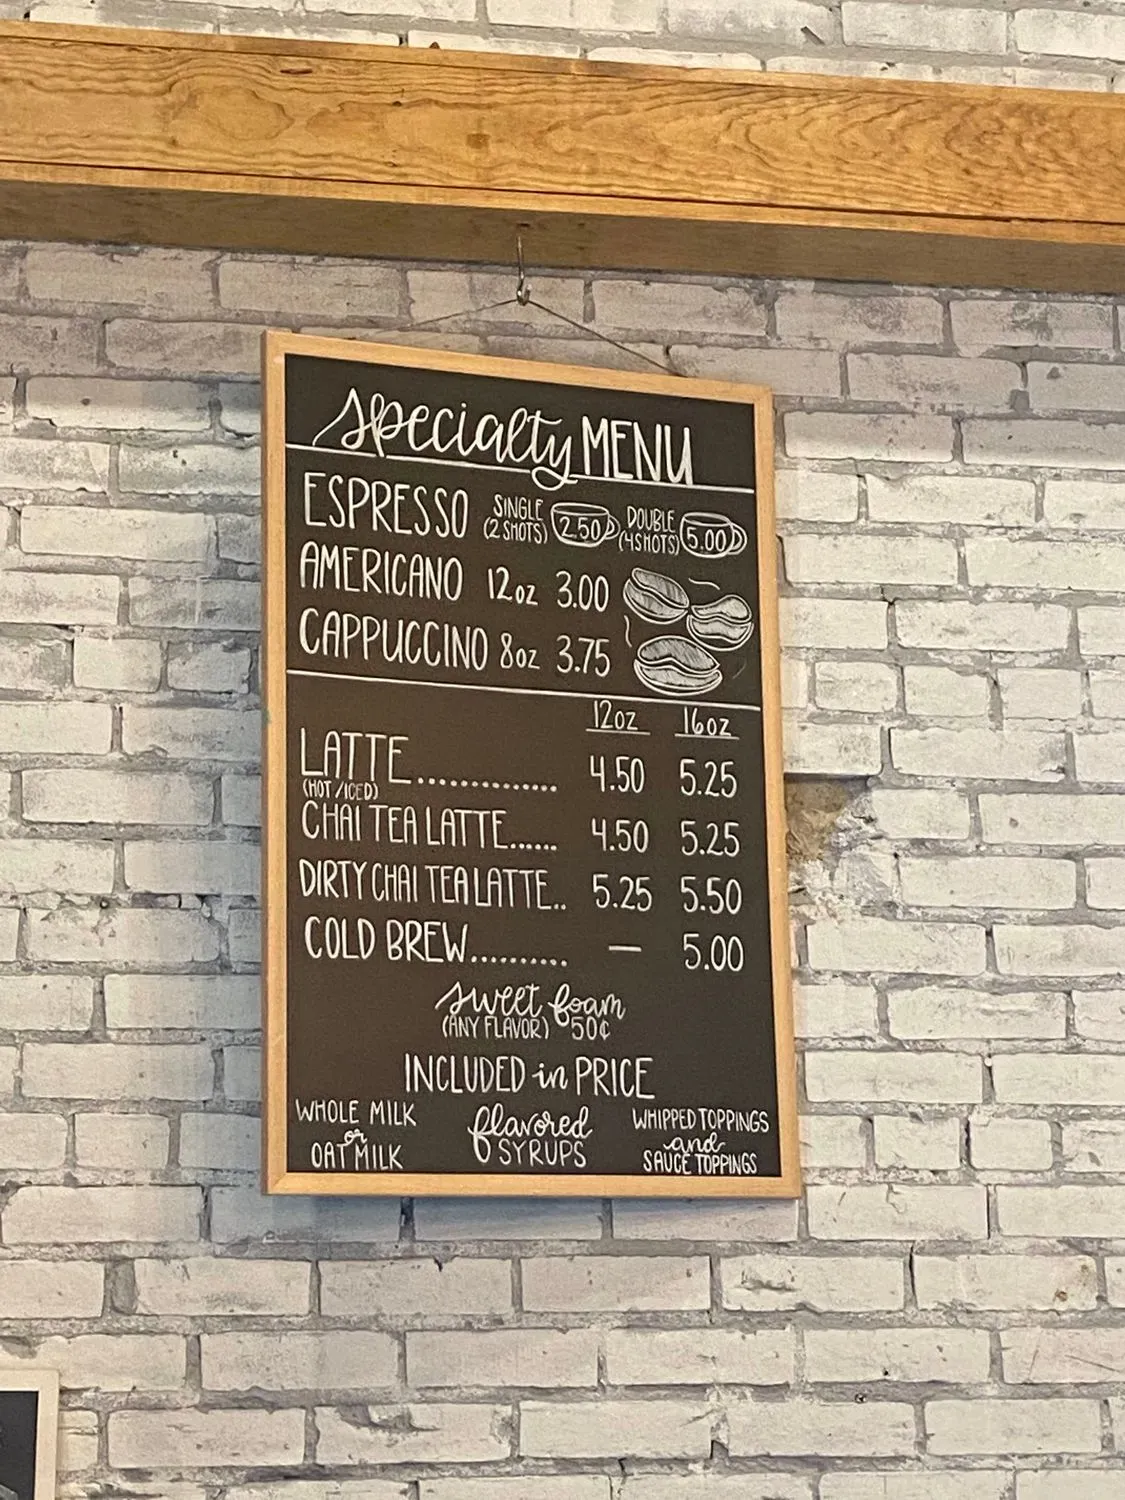 specialty MENU
ESPRESSO SINGLE (2 SHOTS) 2.50 DOUBLE (4 SHOTS) 5.00
AMERICANO 12oz 3.00
CAPPUCCINO 8oz 3.75
12oz 16oz
LATTE.............. 4.50 5.25
(HOT/ICED)
CHAI TEA LATTE...... 4.50 5.25
DIRTY CHAI TEA LATTE.. 5.25 5.50
COLD BREW.......... — 5.00
sweet foam
(ANY FLAVOR) 50¢
INCLUDED in PRICE
WHOLE MILK
or
OAT MILK
flavored
SYRUPS
WHIPPED TOPPINGS
and
SAUCE TOPPINGS